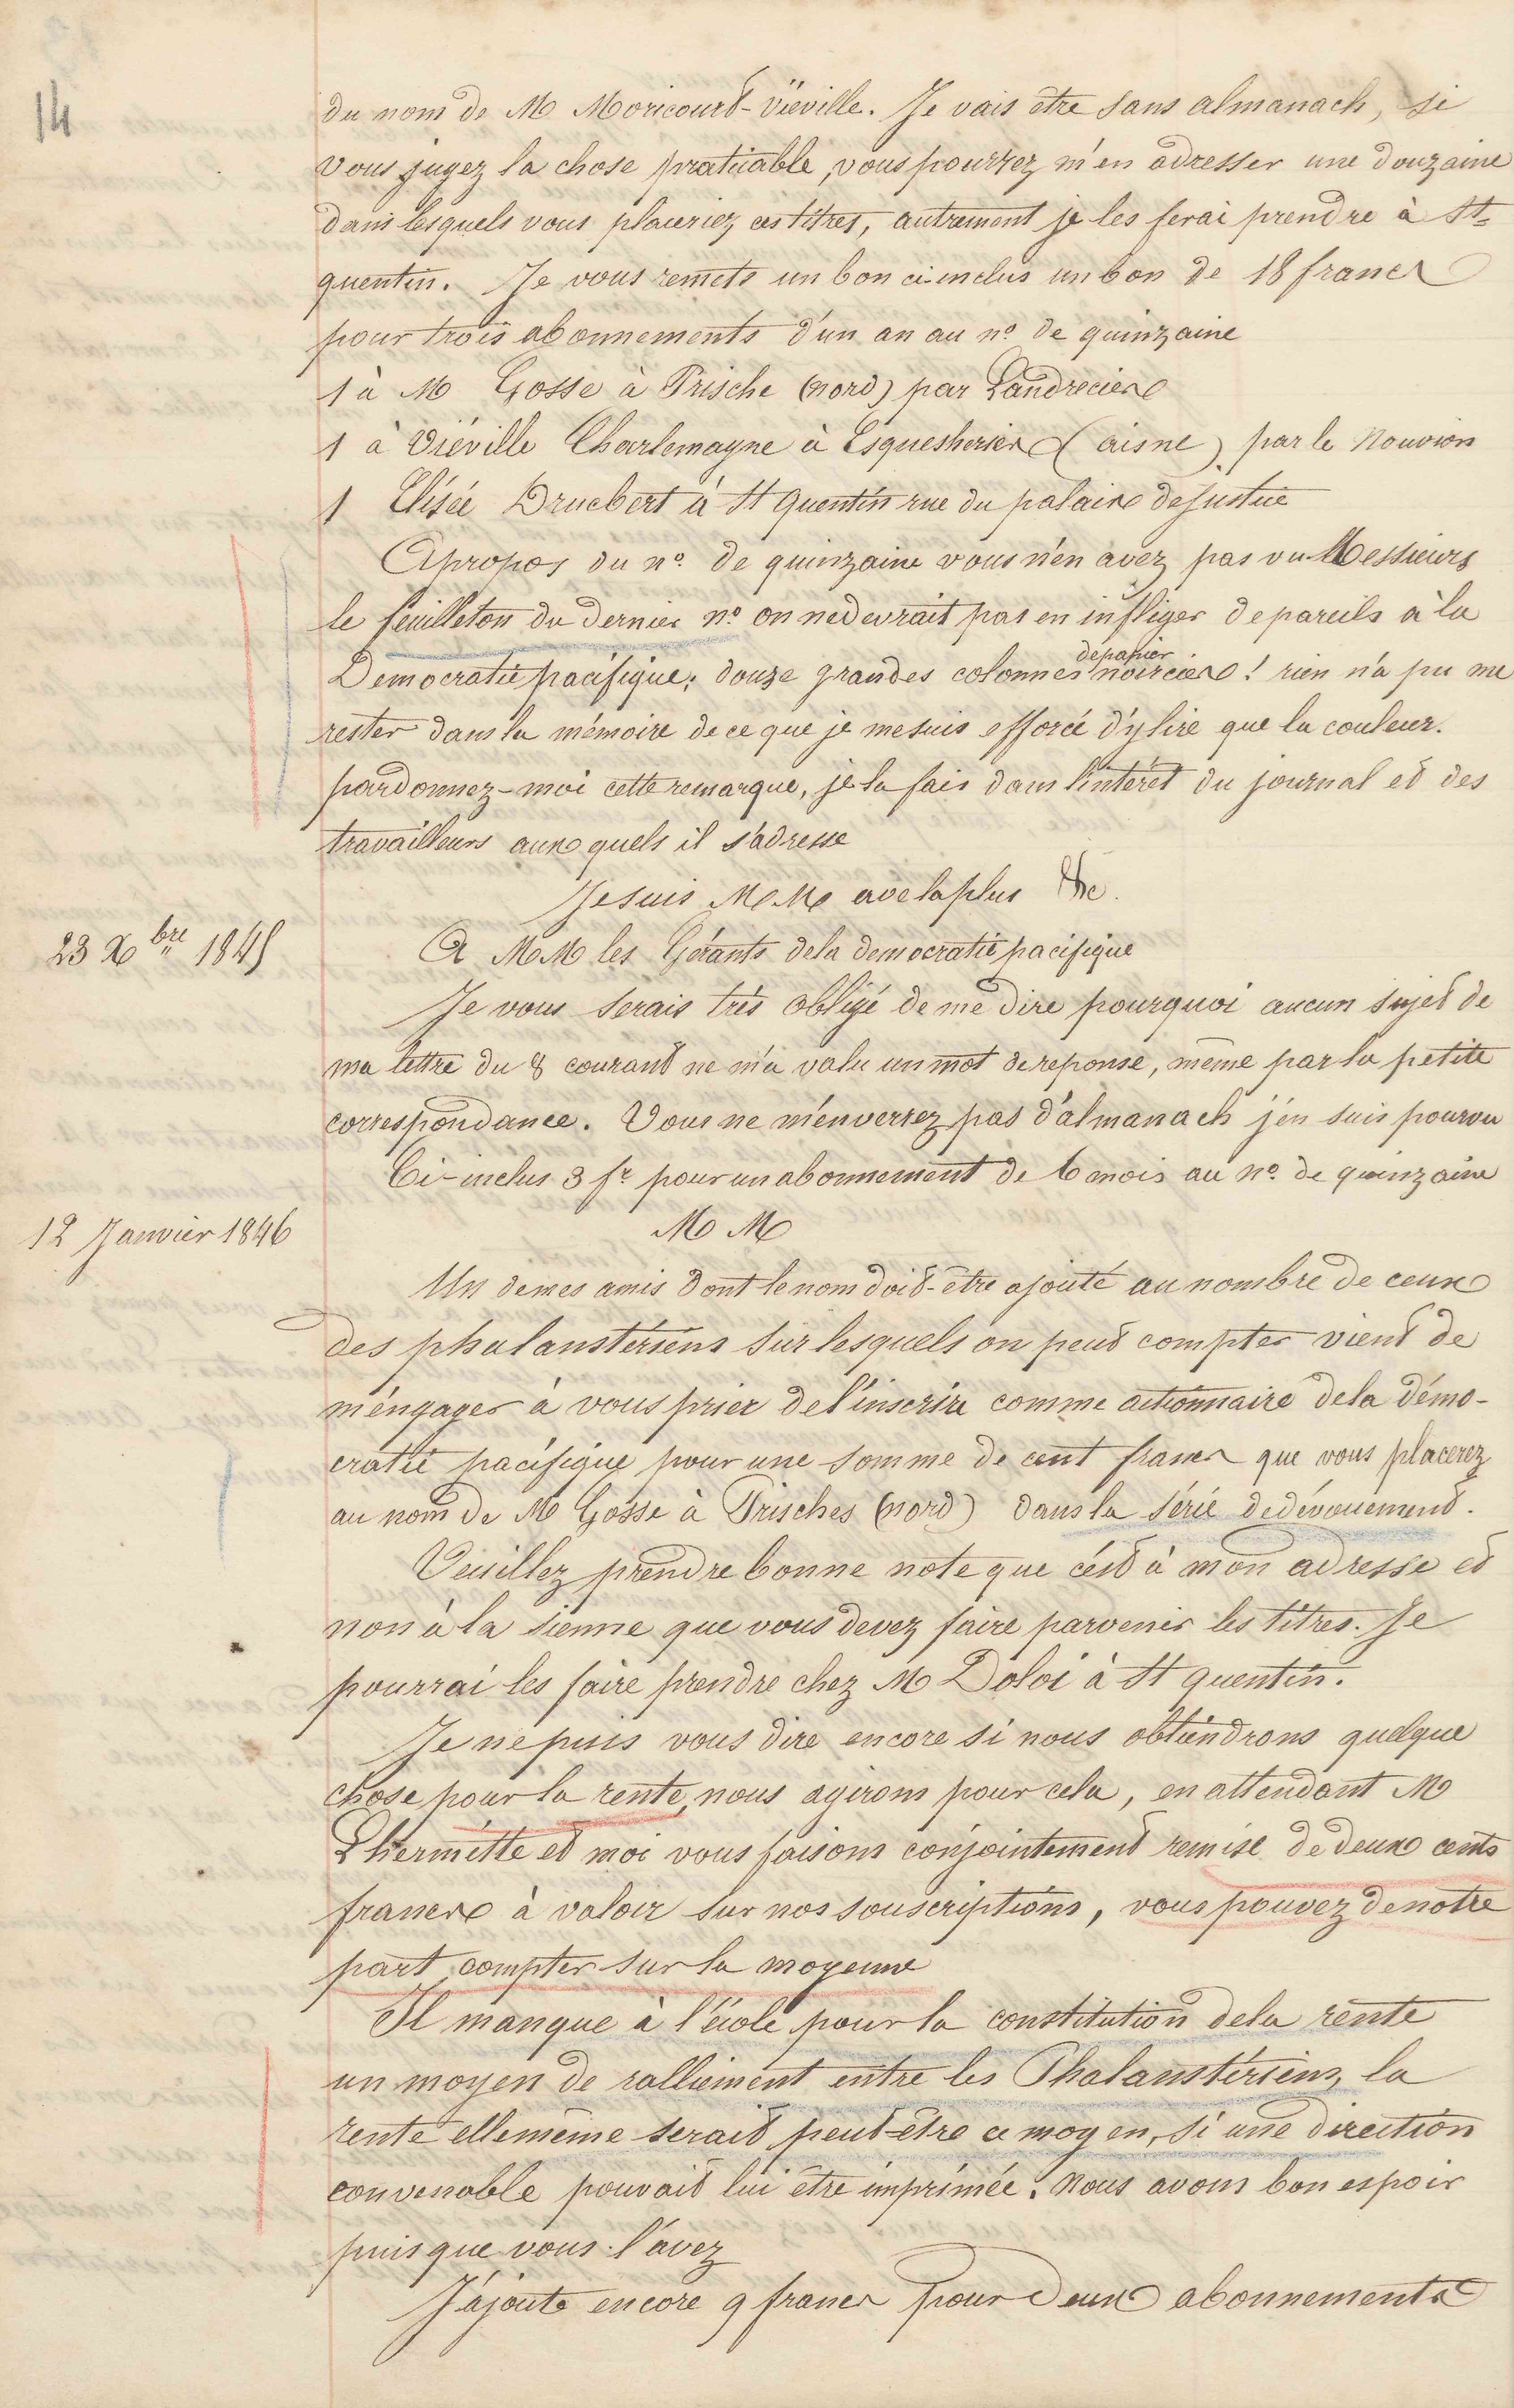 14
du nom de M Moricourt-Viéville. Je vais être sans almanach, si
vous jugez la chose praticable, vous pourrez m'en adresser une douzaine
dans lesquels vous placeriez ces titres, autrement je les ferai prendre à St
quentin. Je vous remets un bon ci-inclus un bon de 18 francs
pour trois abonnements d'un an au n.o de quinzaine
1 à M Gosse à Prische (nord) par Landrecies
1 à Viéville Charlemagne à Esqueheries (aisne) par le Nouvion
1 Elisée Druebert à St Quentin rue du palais de Justice
Apropos du n.o de quinzaine vous n'en avez pas vu Messieurs
le feuilleton du dernier n.o on ne devrait pas en infliger de pareils à la
Democratie pacifique; douze grandes colonnes de papier noircies! rien n'a pu me
rester dans la mémoire de ce que je me suis efforcé d'y lire que la couleur.
pardonnez-moi cette remarque, je la fais dans l'intérêt du journal et des
travailleurs aux quels il s'adresse
Je suis M M avec la plus &c.
23 Xbre 1845
A M M les Gérants de la democratie pacifique
Je vous serais très obligé de me dire pourquoi aucun sujet de
ma lettre du 8 courant ne m'a valu un mot de reponse, même par la petite
correspondance. Vous ne m'enverrez pas d'almanach j'en suis pourvu
Ci-inclus 3 fr. pour un abonnement de 6 mois au n.o de quinzaine
12 Janvier 1846
M M
Un de mes amis dont le nom doit-être ajouté au nombre de ceux
des phalanstériens sur lesquels on peut compter vient de
m'engager à vous prier de l'inscrire comme actionnaire de la démo-
cratie pacifique pour une somme de cent francs que vous placerez
au nom de M Gosse à Prisches (nord) dans la série de dévouement.
Veuillez prendre bonne note que c'est à mon adresse et
non à la sienne que vous devez faire parvenir les titres. Je
pourrai les faire prendre chez M Doloi à St quentin.
Je ne puis vous dire encore si nous obtiendrons quelque
chose pour la rente, nous agirons pour cela, en attendant M
Lhermitte et moi vous faisons conjointement remise de deux cents
francs à valoir sur nos souscriptions, vous pouvez de notre
part compter sur la moyenne
Il manque à l'école pour la constitution de la rente
un moyen de ralliement entre les Phalanstériens, la
rente elle même serait peut-être ce moyen, si une direction
convenable pouvait lui être imprimée. Nous avons bon espoir
puisque vous l'avez
J'ajoute encore 9 francs pour deux abonnements